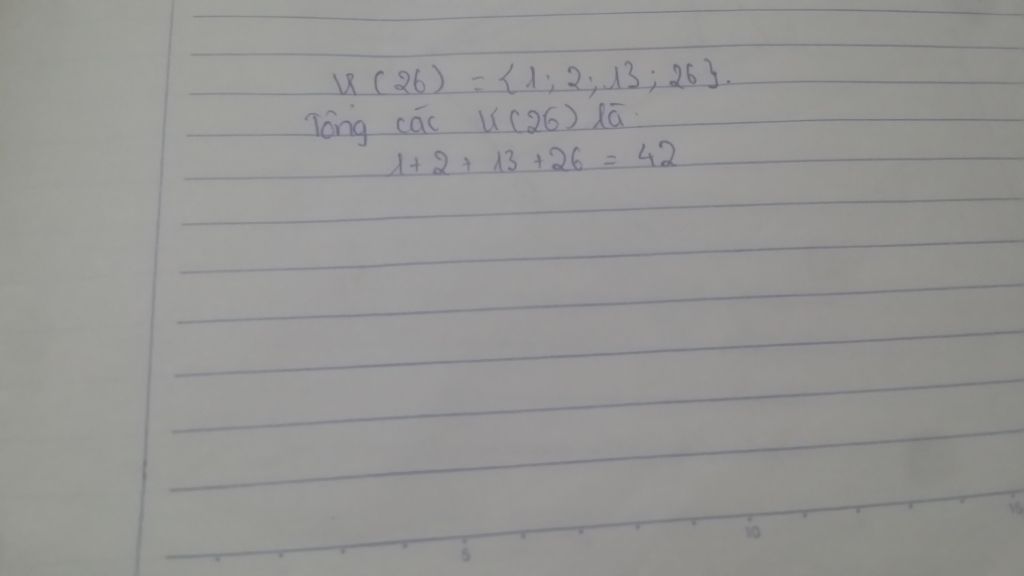 Ư(26) = {1; 2; 13; 26}.
Tổng các Ư(26) là
1 + 2 + 13 + 26 = 42
5 10 15